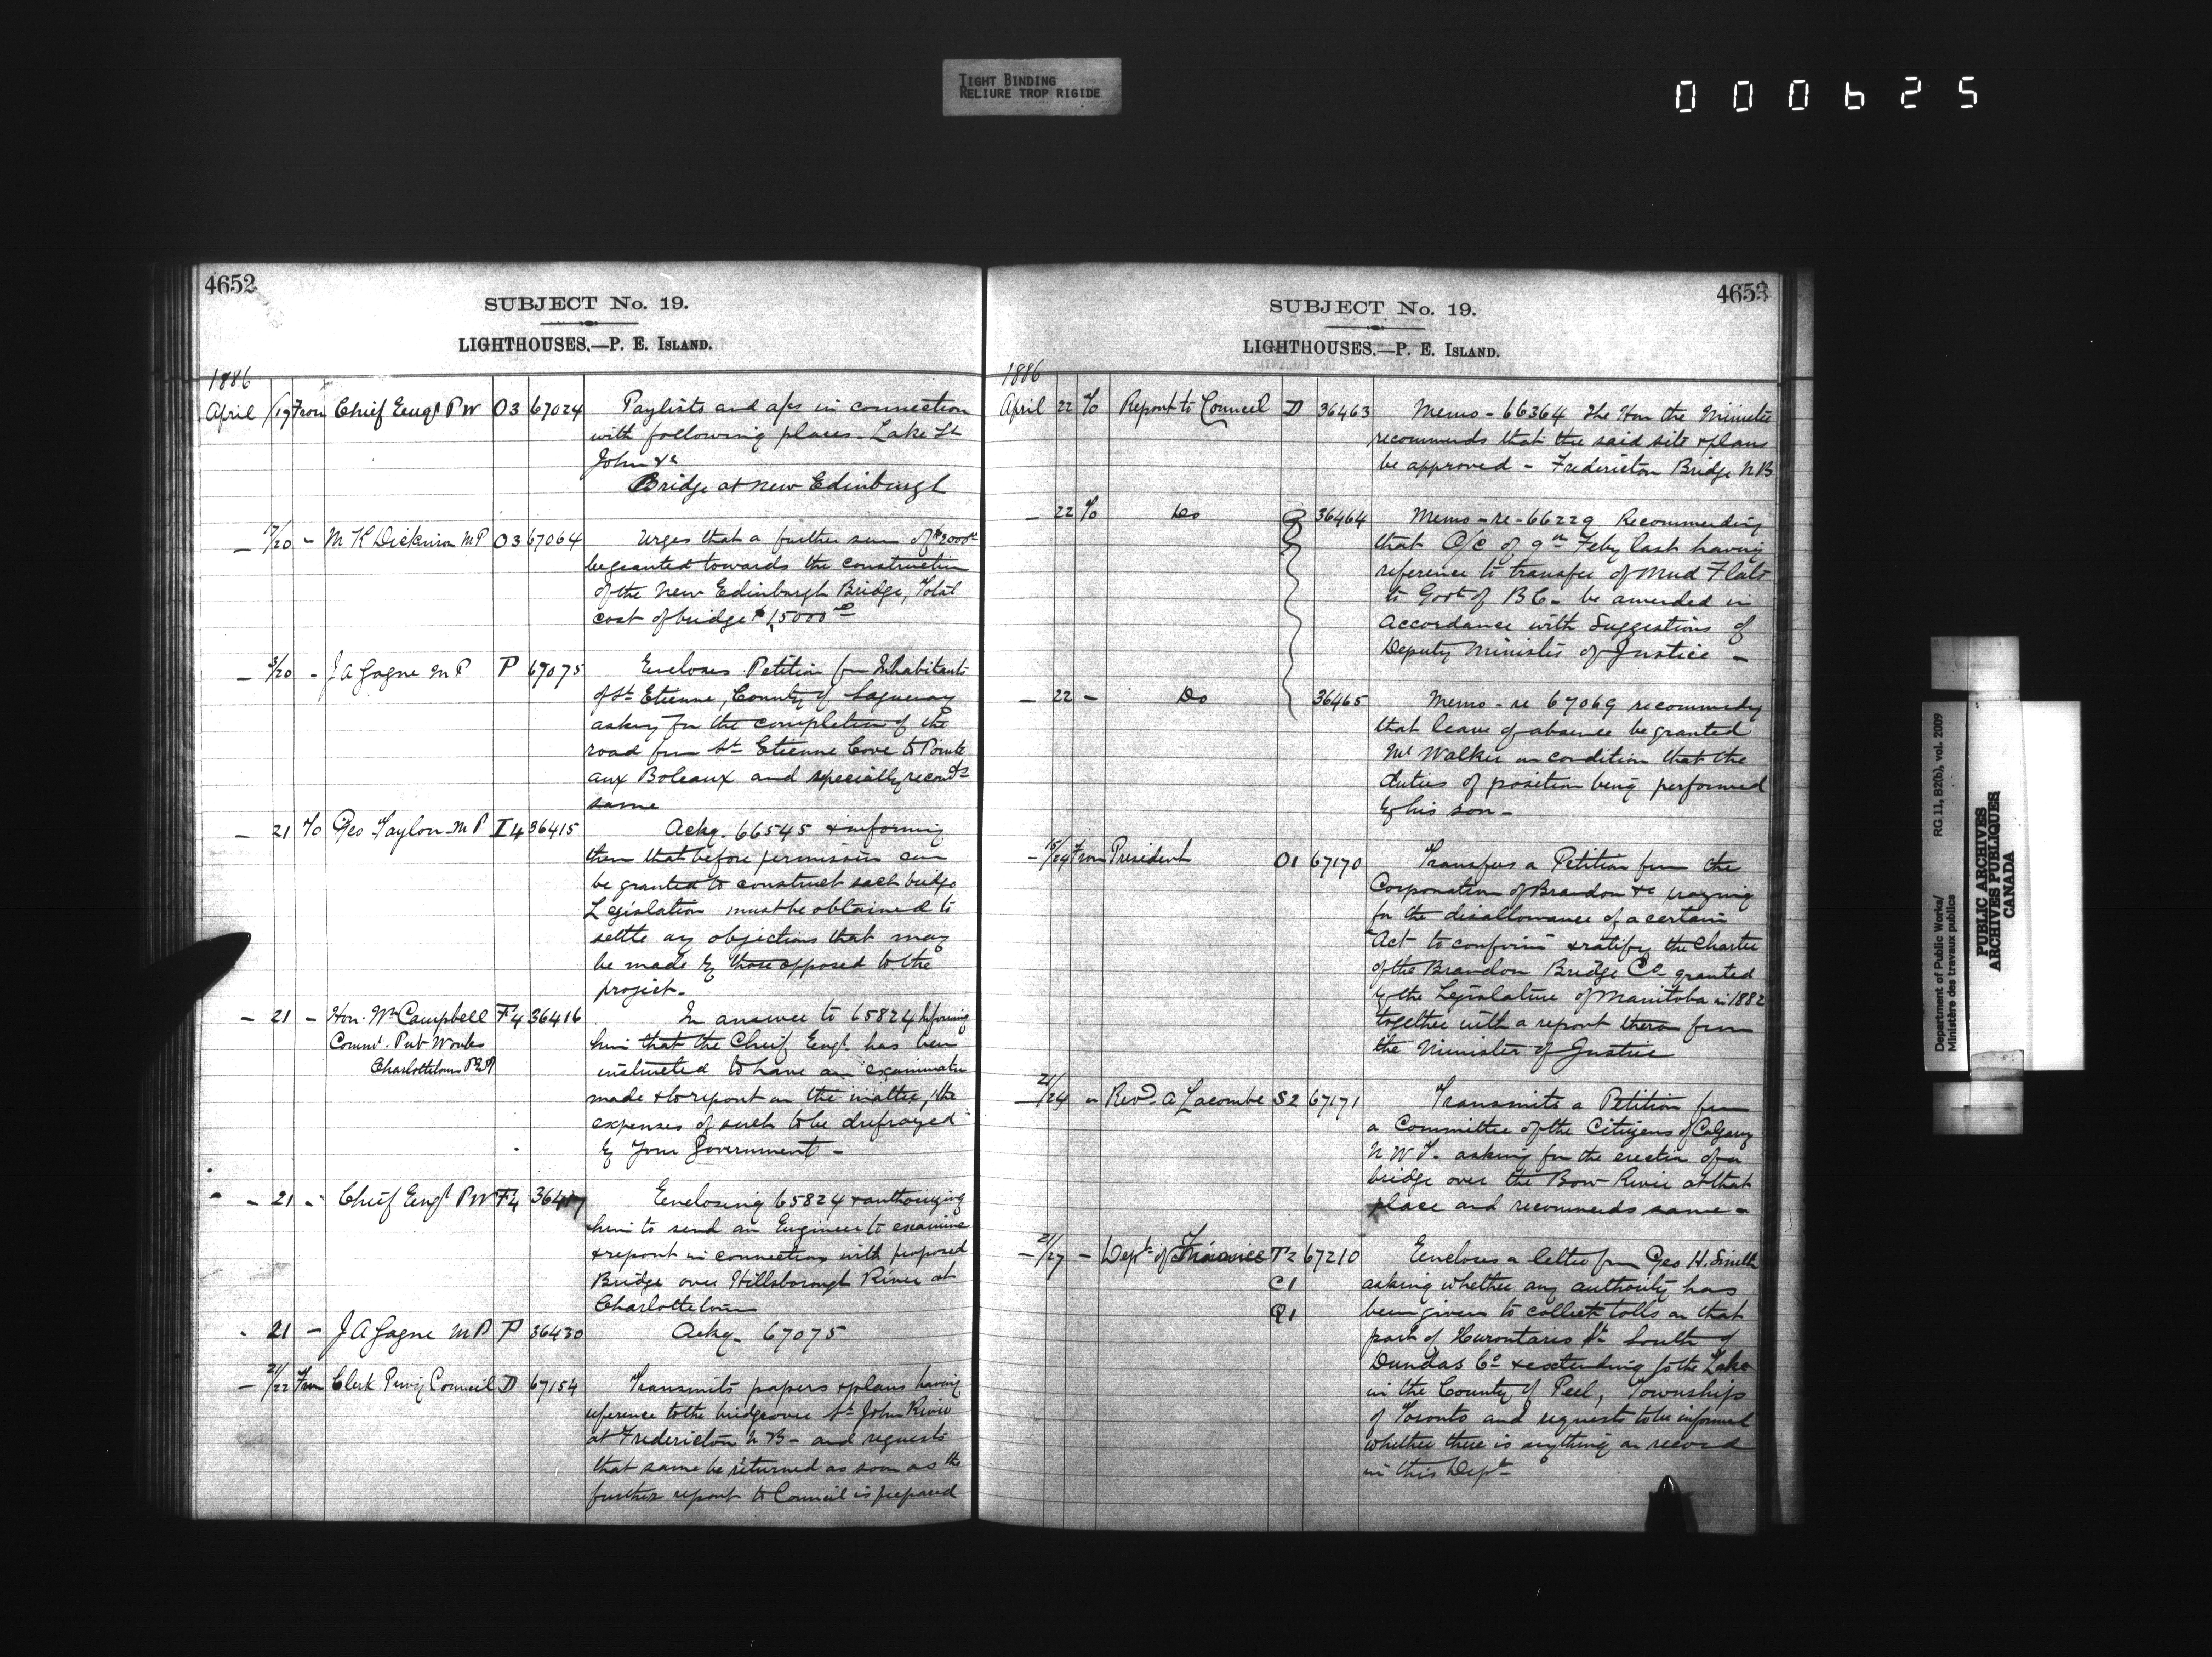 TIGHT BINDING
RELIURE TROP RIGIDE
000625
4652
SUBJECT No. 19.
LIGHTHOUSES.—P. E. ISLAND.
1886
April /19 From Chief Engr P W O3 67024 Paylists and a/cs in connection
with following places. Lake St
John &c
Bridge at New Edinburgh
— 17/20 - M K Dickinson MP O3 67064 Urges that a further sum of $2000
be granted towards the construction
of the New Edinburgh Bridge, Total
cost of bridge $15000
— 3/20 - J A Gagne M P P 67075 Encloses Petition from Inhabitants
of St Etienne, County of Saguenay
asking for the completion of the
road from St Etienne Cove to Pointe
aux Boleaux and specially recomds
same
— 21 To Geo Taylor M P I4 36415 Ackg. 66545 & informing
them that before permission can
be granted to construct such bridge
Legislation must be obtained to
settle any objections that may
be made by those opposed to the
project.
— 21 — Hon. Wm Campbell F4 36416 In answer to 65824 Informing
Commr. Pub Works him that the Cheif Engr has been
Charlottetown PEI instructed to have an examination
made & to report on the matter, the
expenses of such to be drefrayed
by Your Government —
— 21 - Chief Engr P W F4 36417 Enclosing 65824 & authorizing
him to send an Engineer to examine
& report in connection with proposed
Bridge over Hillsborough River at
Charlottetown
- 21 — J A Gagne M P P 36430 Ackg. 67075
— 21/22 From Clerk Privy Council D 67154 Transmits papers & plans having
reference to the bridge over St John River
at Fredericton N B — and requests
that same be returned as soon as the
further report to Council is prepared
4653
SUBJECT No. 19.
LIGHTHOUSES.—P. E. ISLAND.
1886
April 22 To Report to Council D 36463 Memo - 66364 The Hon the Minister
recommends that the said site & plans
be approved — Fredericton Bridge N B
— 22 To Do 36464 Memo - re - 66229 Recommending
that O/C of 9th Feby last having
reference to transfer of Mud Flats
to Govt of B C — be amended in
accordance with Suggestions of
Deputy Minister of Justice —
— 22 - Do 36465 Memo - re 67069 recommendg
that leave of absence be granted
Mr Walker on condition that the
duties of position being performed
by his son —
— 15/24 From President O1 67170 Transfers a Petition from the
Corporation of Brandon &c praying
for the disallowance of a certain
"Act to confirm & ratify the Charter
of the Brandon Bridge Co granted
by the Legislature of Manitoba in 1882
together with a report thereon from
the Minister of Justice
— 21/24 " Revd. A Lacombe S2 67171 Transmits a Petition from
a Committee of the Citizens of Calgary
N W T. asking for the erection of a
bridge over the Bow River at that
place and recommends same —
— 21/27 — Dept of Finance T2 67210 Encloses a letter from Geo H. Smith
C1 asking whether any authority has
Q1 been given to collect tolls on that
part of Hurontario St South of
Dundas Co & extending to the Lake
in the County of Peel, Township
of Toronto and requests to be informed
whether there is anything on record
in this Dept
Department of Public Works/ RG 11, B2(b), vol. 2009
Ministère des travaux publics
PUBLIC ARCHIVES
ARCHIVES PUBLIQUES
CANADA